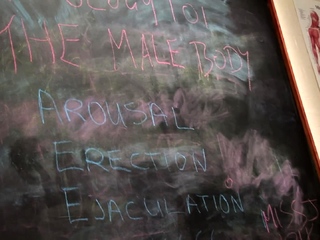 THE MALE BODY
AROUSAL
ERECTION
EJACULATION
MISS J